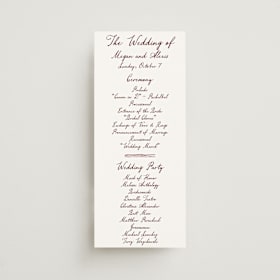 The Wedding of
Megan and Alexis
Sunday, October 7
Ceremony
Prelude
"Canon in D" - Pachelbel
Processional
Entrance of the Bride
"Bridal Chorus"
Exchange of Vows & Rings
Pronouncement of Marriage
Recessional
"Wedding March"
Wedding Party
Maid of Honor
Melissa Anthology
Bridesmaids
Danielle Tinker
Christina Alexander
Best Man
Matthew
Groomsmen
Michael
Tony